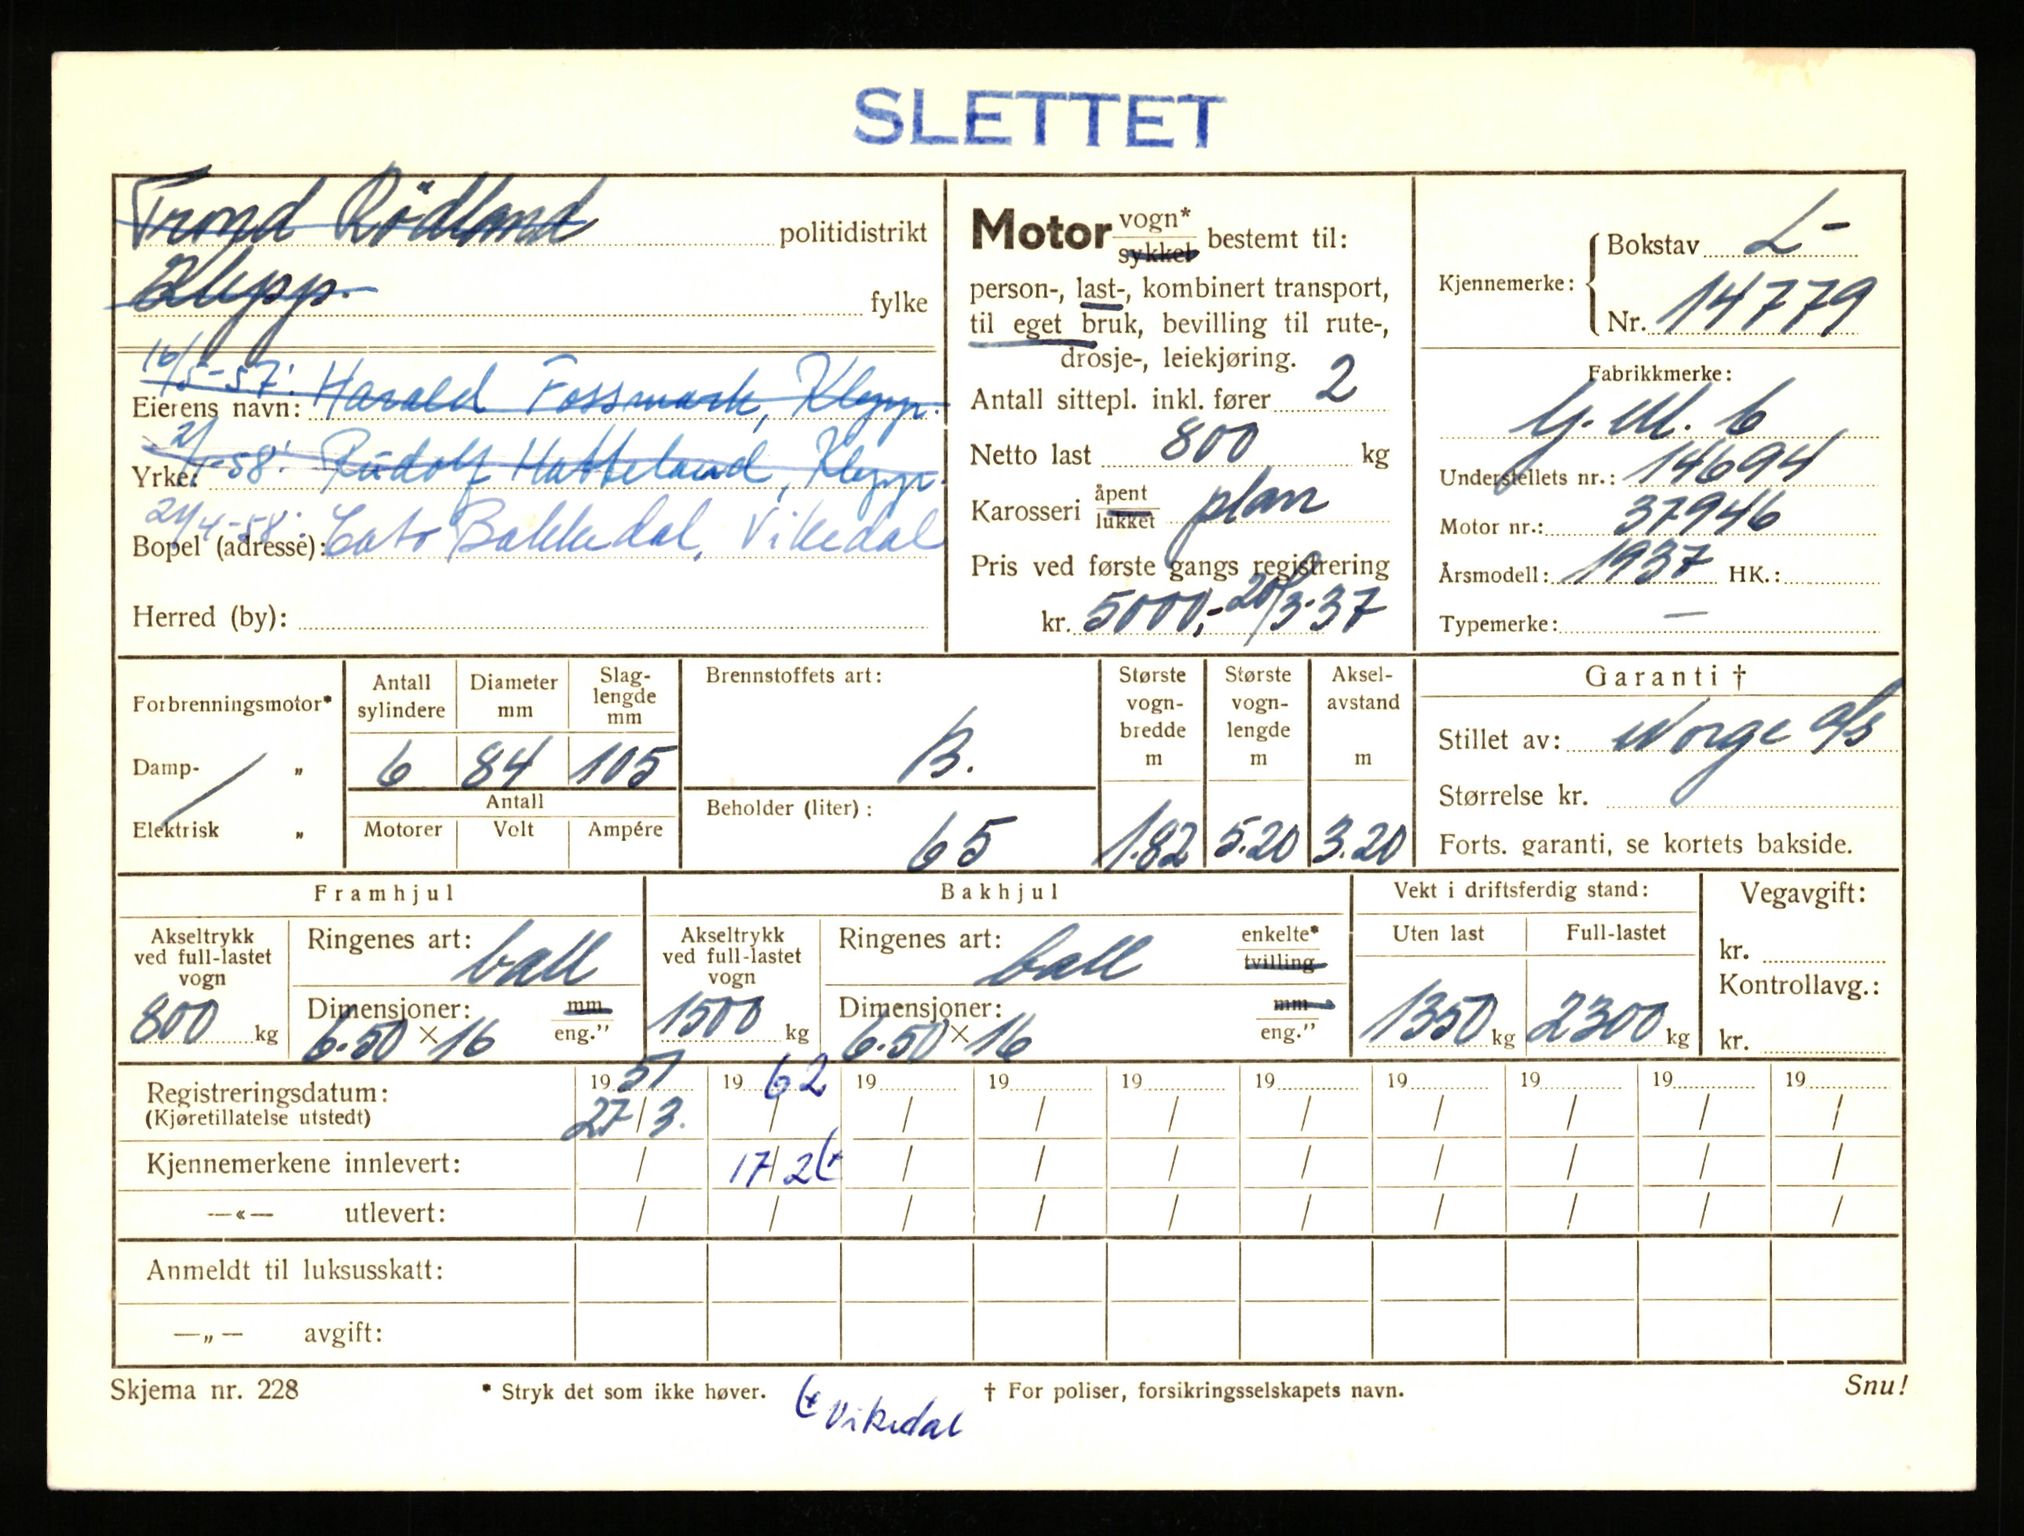 SLETTET
Trond Rødland politidistrikt
Klepp. fylke
16/5-57. Harald Fossmark, Klepp.
Eierens navn:
2/1-58. Rudolf Hatteland, Klepp.
Yrke:
21/4-58. Cato Bakkedal, Vikedal
Bopel (adresse):
Herred (by):
Motor vogn* sykkel bestemt til:
person-, last-, kombinert transport,
til eget bruk, bevilling til rute-,
drosje-, leiekjøring.
Antall sittepl. inkl. fører 2
Netto last 800 kg
Karosseri åpent lukket plan
Pris ved første gangs registrering
kr. 5000,- 20/3-37
Kjennemerke: Bokstav L-
Nr. 14779
Fabrikkmerke:
G.M.C
Understellets nr.: 14694
Motor nr.: 37946
Årsmodell: 1937 HK.:
Typemerke: —
Forbrenningsmotor*
Damp- „
Elektrisk „
Antall sylindere
Diameter mm
Slag-lengde mm
6 84 105
Antall
Motorer Volt Ampére
Brennstoffets art:
B.
Beholder (liter):
65
Største vogn-bredde m
1.82
Største vogn-lengde m
5.20
Aksel-avstand m
3.20
Garanti †
Stillet av: Norge a/s
Størrelse kr.
Forts. garanti, se kortets bakside.
Framhjul
Akseltrykk
ved full-lastet
vogn
800 kg
Ringenes art: ball
Dimensjoner: mm
6.50 × 16 eng.”
Bakhjul
Akseltrykk
ved full-lastet
vogn
1500 kg
Ringenes art: ball enkelte* tvilling
Dimensjoner: mm
6.50 × 16 eng.”
Vekt i driftsferdig stand:
Uten last Full-lastet
1350 kg 2300 kg
Vegavgift:
kr.
Kontrollavg.:
kr.
Registreringsdatum: 19 57 19 62 19 19 19 19 19 19 19 19
(Kjøretillatelse utstedt) 27/3. / / / / / / / / /
Kjennemerkene innlevert: / 17/2 (+ / / / / / / / /
—«— utlevert: / / / / / / / / / /
Anmeldt til luksusskatt:
—„— avgift:
Skjema nr. 228 * Stryk det som ikke høver. † For poliser, forsikringsselskapets navn. Snu!
(+ Vikedal